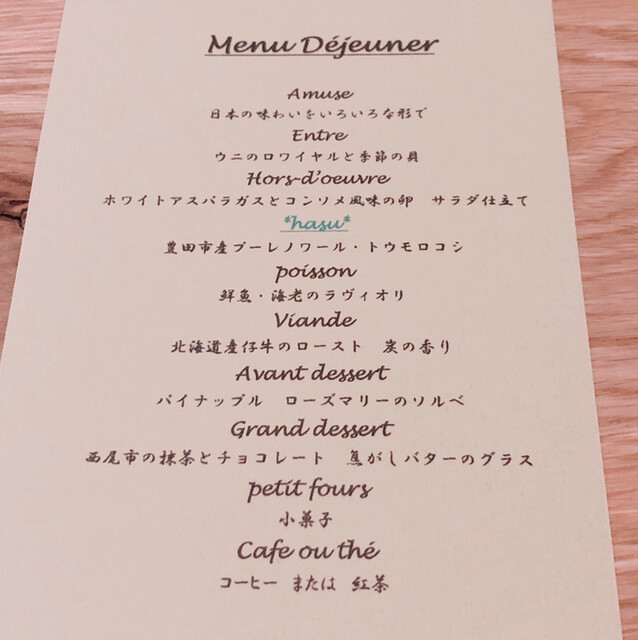 Menu Déjeuner
Amuse
日本の味わいをいろいろな形で
Entre
ウニのロワイヤルと季節の貝
Hors-d'oeuvre
ホワイトアスパラガスとコンソメ風味の卵　サラダ仕立て
*hasu*
豊田市産プーレノワール・トウモロコシ
poisson
鮮魚・海老のラヴィオリ
Viande
北海道産仔牛のロースト　炭の香り
Avant dessert
パイナップル　ローズマリーのソルベ
Grand dessert
西尾市の抹茶とチョコレート　焦がしバターのグラス
petit fours
小菓子
Cafe ou thé
コーヒー　または　紅茶